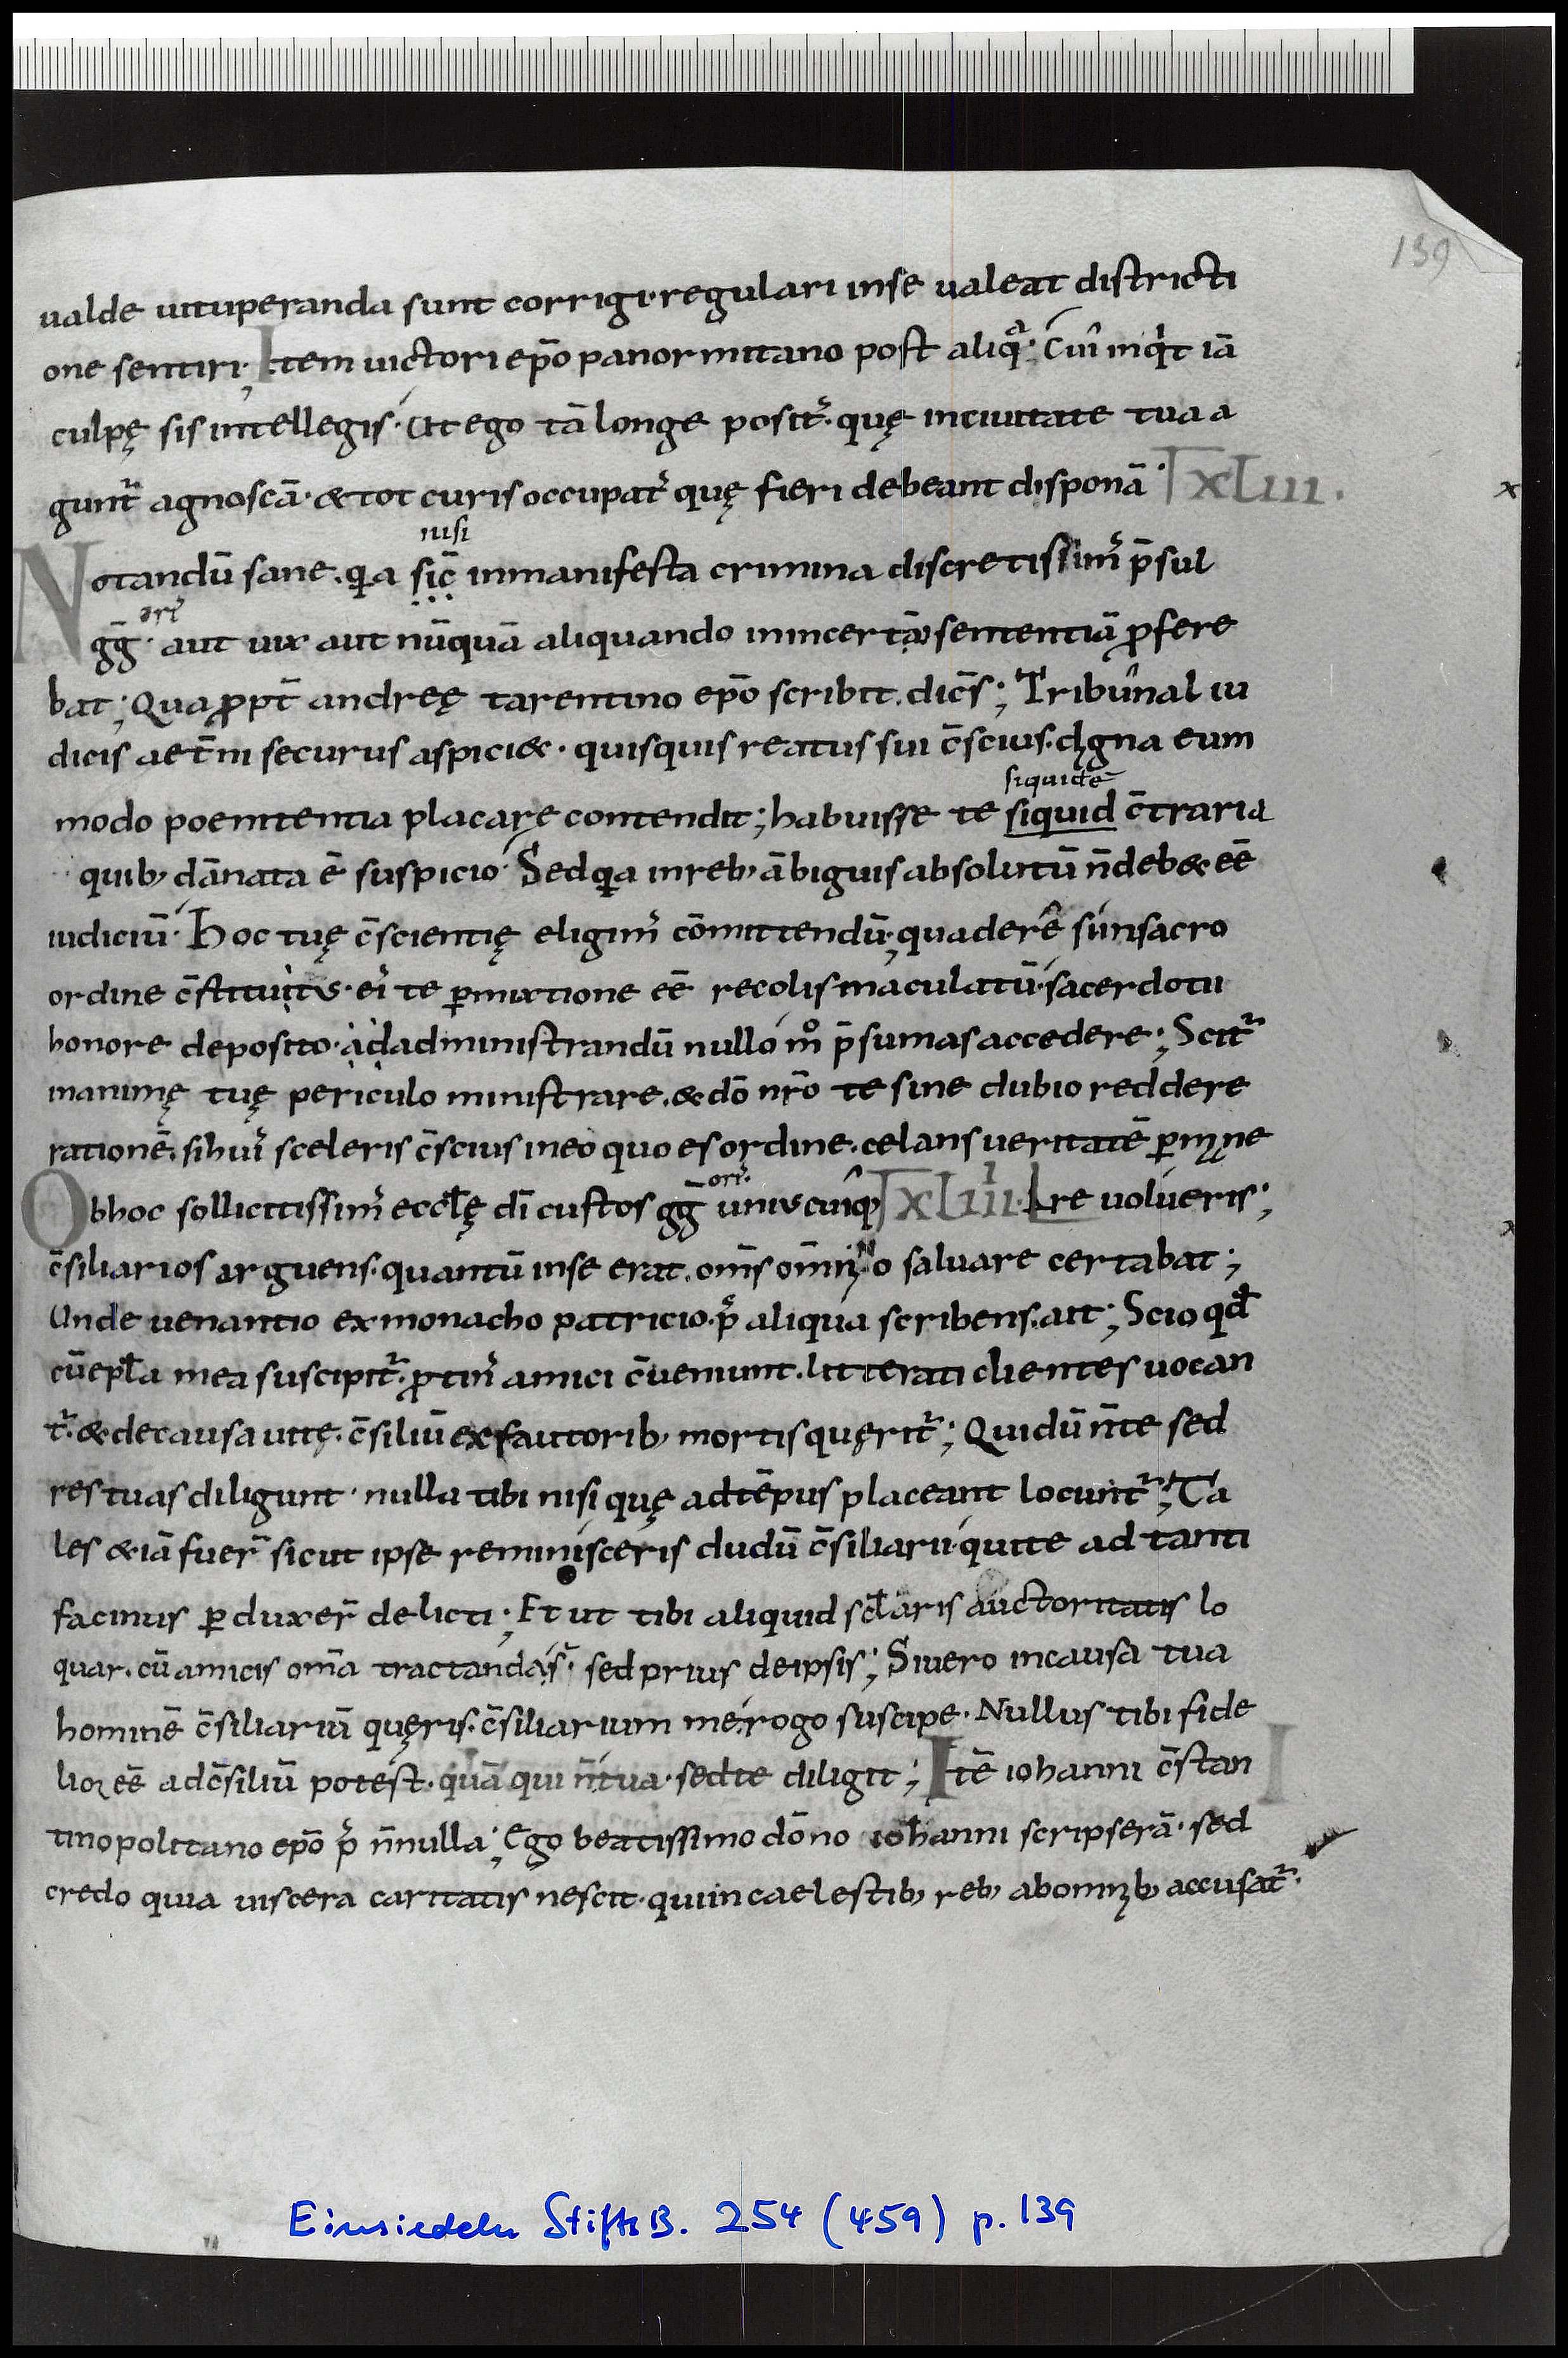 139
ualde uituperanda sunt corrigi· regulari inse ualeat districti
one sentiri; Item uictori ep̄o panormitano post aliqᵃ· Cuī inqͥt iā
culpę sis intellegis· Ut ego tā longe posit᾿· quę inciuitate tua a
gunt᷑ agnoscā· & tot curis occupat᾿ quę fieri debeant disponā· XLIII.
nisi
Notandū sane. qͥa sic̄ inmanifesta crimina discretissim᾿ p̄sul
ori᾿
gḡ· aut uix aut nūquā aliquando inincertā sententiā ꝓfere
bat; Quaꝓpt̄ andreę tarentino ep̄o scribit. dicēs; Tribunal iu
dicis aet̄ni securus aspici&· quisquis reatus sui c̄scius. dįgna eum
siquidē
modo poenitentia placare contendit; habuisse te siquid c̄traria
quib; dānata ē suspicio· Sed qͥa inreb; ābiguis absolutū n̄ deb& eē
iudiciū· Hoc tuę c̄scientię eligim᾿ cōmittendū; quaderē sūnsacro
ordine c̄stitutus· ei᾿ te ꝑmixtione eē recolis maculatū· sacerdotii
honore deposito· ad administrandū nullo m̊ p̄sumas accedere; Scit᷑
inanimę tuę periculo ministrare. & dō nr̄o te sine dubio reddere
rationē. sihui᾿ sceleris c̄scius ineo quo es ordine. celans ueritatē ꝑmąne
ori᾿
Obhoc sollicitissim᾿ eccłę dī custos gḡ uniuscuiq; XLIIII. Lre uolueris;
c̄siliarios arguens. quantū inse erat. om̄s om̄įno saluare certabat;
Unde uenantio exmonacho patricio. p᾿ aliqua scribens. ait; Scio qđ
cū epła mea suscipit᷑· ꝓtin᾿ amici c̄ueniunt. litterati clientes uocan
t᷑. & decausa uitę. c̄siliū exfautorib; mortis quęrit᷑; Quidū n̄ te sed
res tuas diligunt· nulla tibi nisi quę adtēpus placeant locunt᷑; Ta
les & iā fuer̄ sicut ipse reminisceris dudū c̄siliarii· quite ad tanti
facinus ꝑduxer̄ delicti; Et ut tibi aliquid scłaris auctoritatis lo
quar. cū amicis om̄a tractanda s᷑· sed prius deipsis; Siuero incausa tua
hominē c̄siliariū quęris. c̄siliarium me rogo suscipe. Nullus tibi fide
lior eē adc̄siliū potest. quā qui n̄ tua. sed te diligit; Itē iohanni c̄stan
tinopolitano ep̄o p᾿ n̄nulla; Ego beatissimo dōno iohanni scripserā· sed
credo quia uiscera caritatis nescit· quiincaelestib; reb; abomįb; accusat᷑·
Einsiedeln StiftsB. 254 (459) p. 139